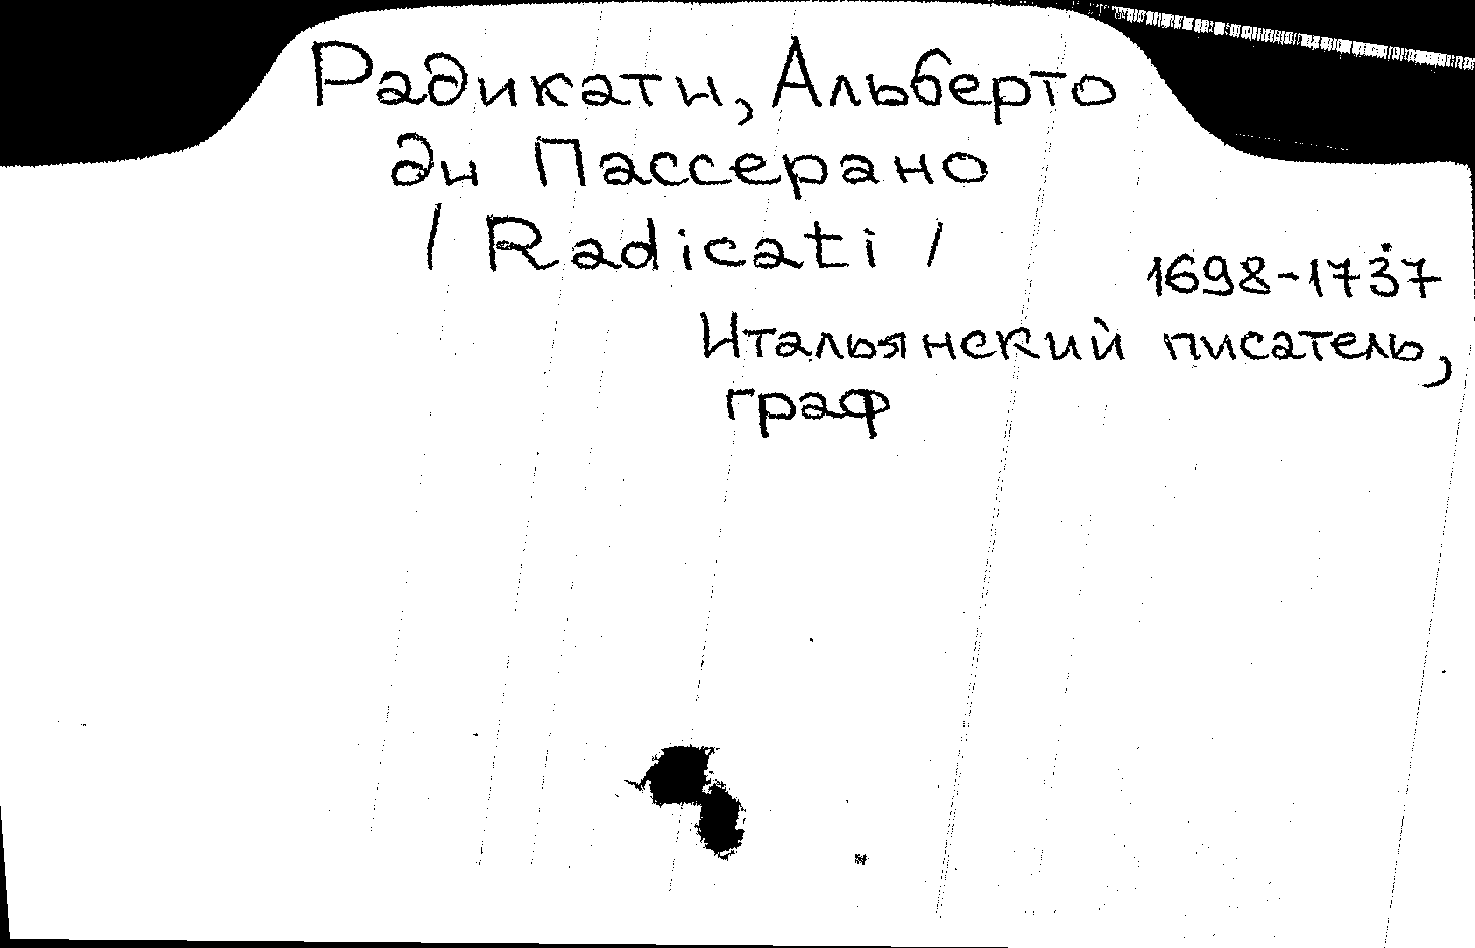 Радикати, Альберто
ди Пассерано
/ Radicati /
1698-1737
Итальянский писатель,
граф